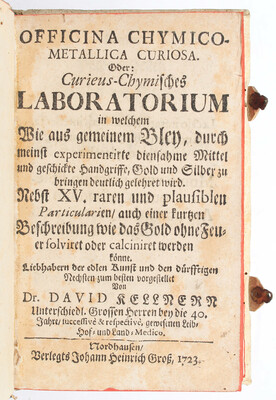 OFFICINA CHYMICO-
METALLICA CURIOSA.
Oder:
Curieus-Chymisches
LABORATORIUM
in welchem
Wie aus gemeinem Bley, durch
meinst experimentirte diensahme Mittel
und geschickte Handgriffe, Gold und Silber zu
bringen deutlich gelehret wird.
Nebst XV. raren und plausiblen
Particularien/ auch einer kurtzen
Beschreibung wie das Gold ohne Feu-
er solviret oder calciniret werden
könne.
Liebhabern der edlen Kunst und den dürfftigen
Nechsten zum besten vorgestellet
Von
Dr. DAVID KELLNERN
Unterschiedl. Grossen Herren bey die 40.
Jahre, successivè & respectivè, gewesenen Leib-
Hof- und Land-Medico.
Nordhausen/
Verlegts Johann Heinrich Groß, 1723.